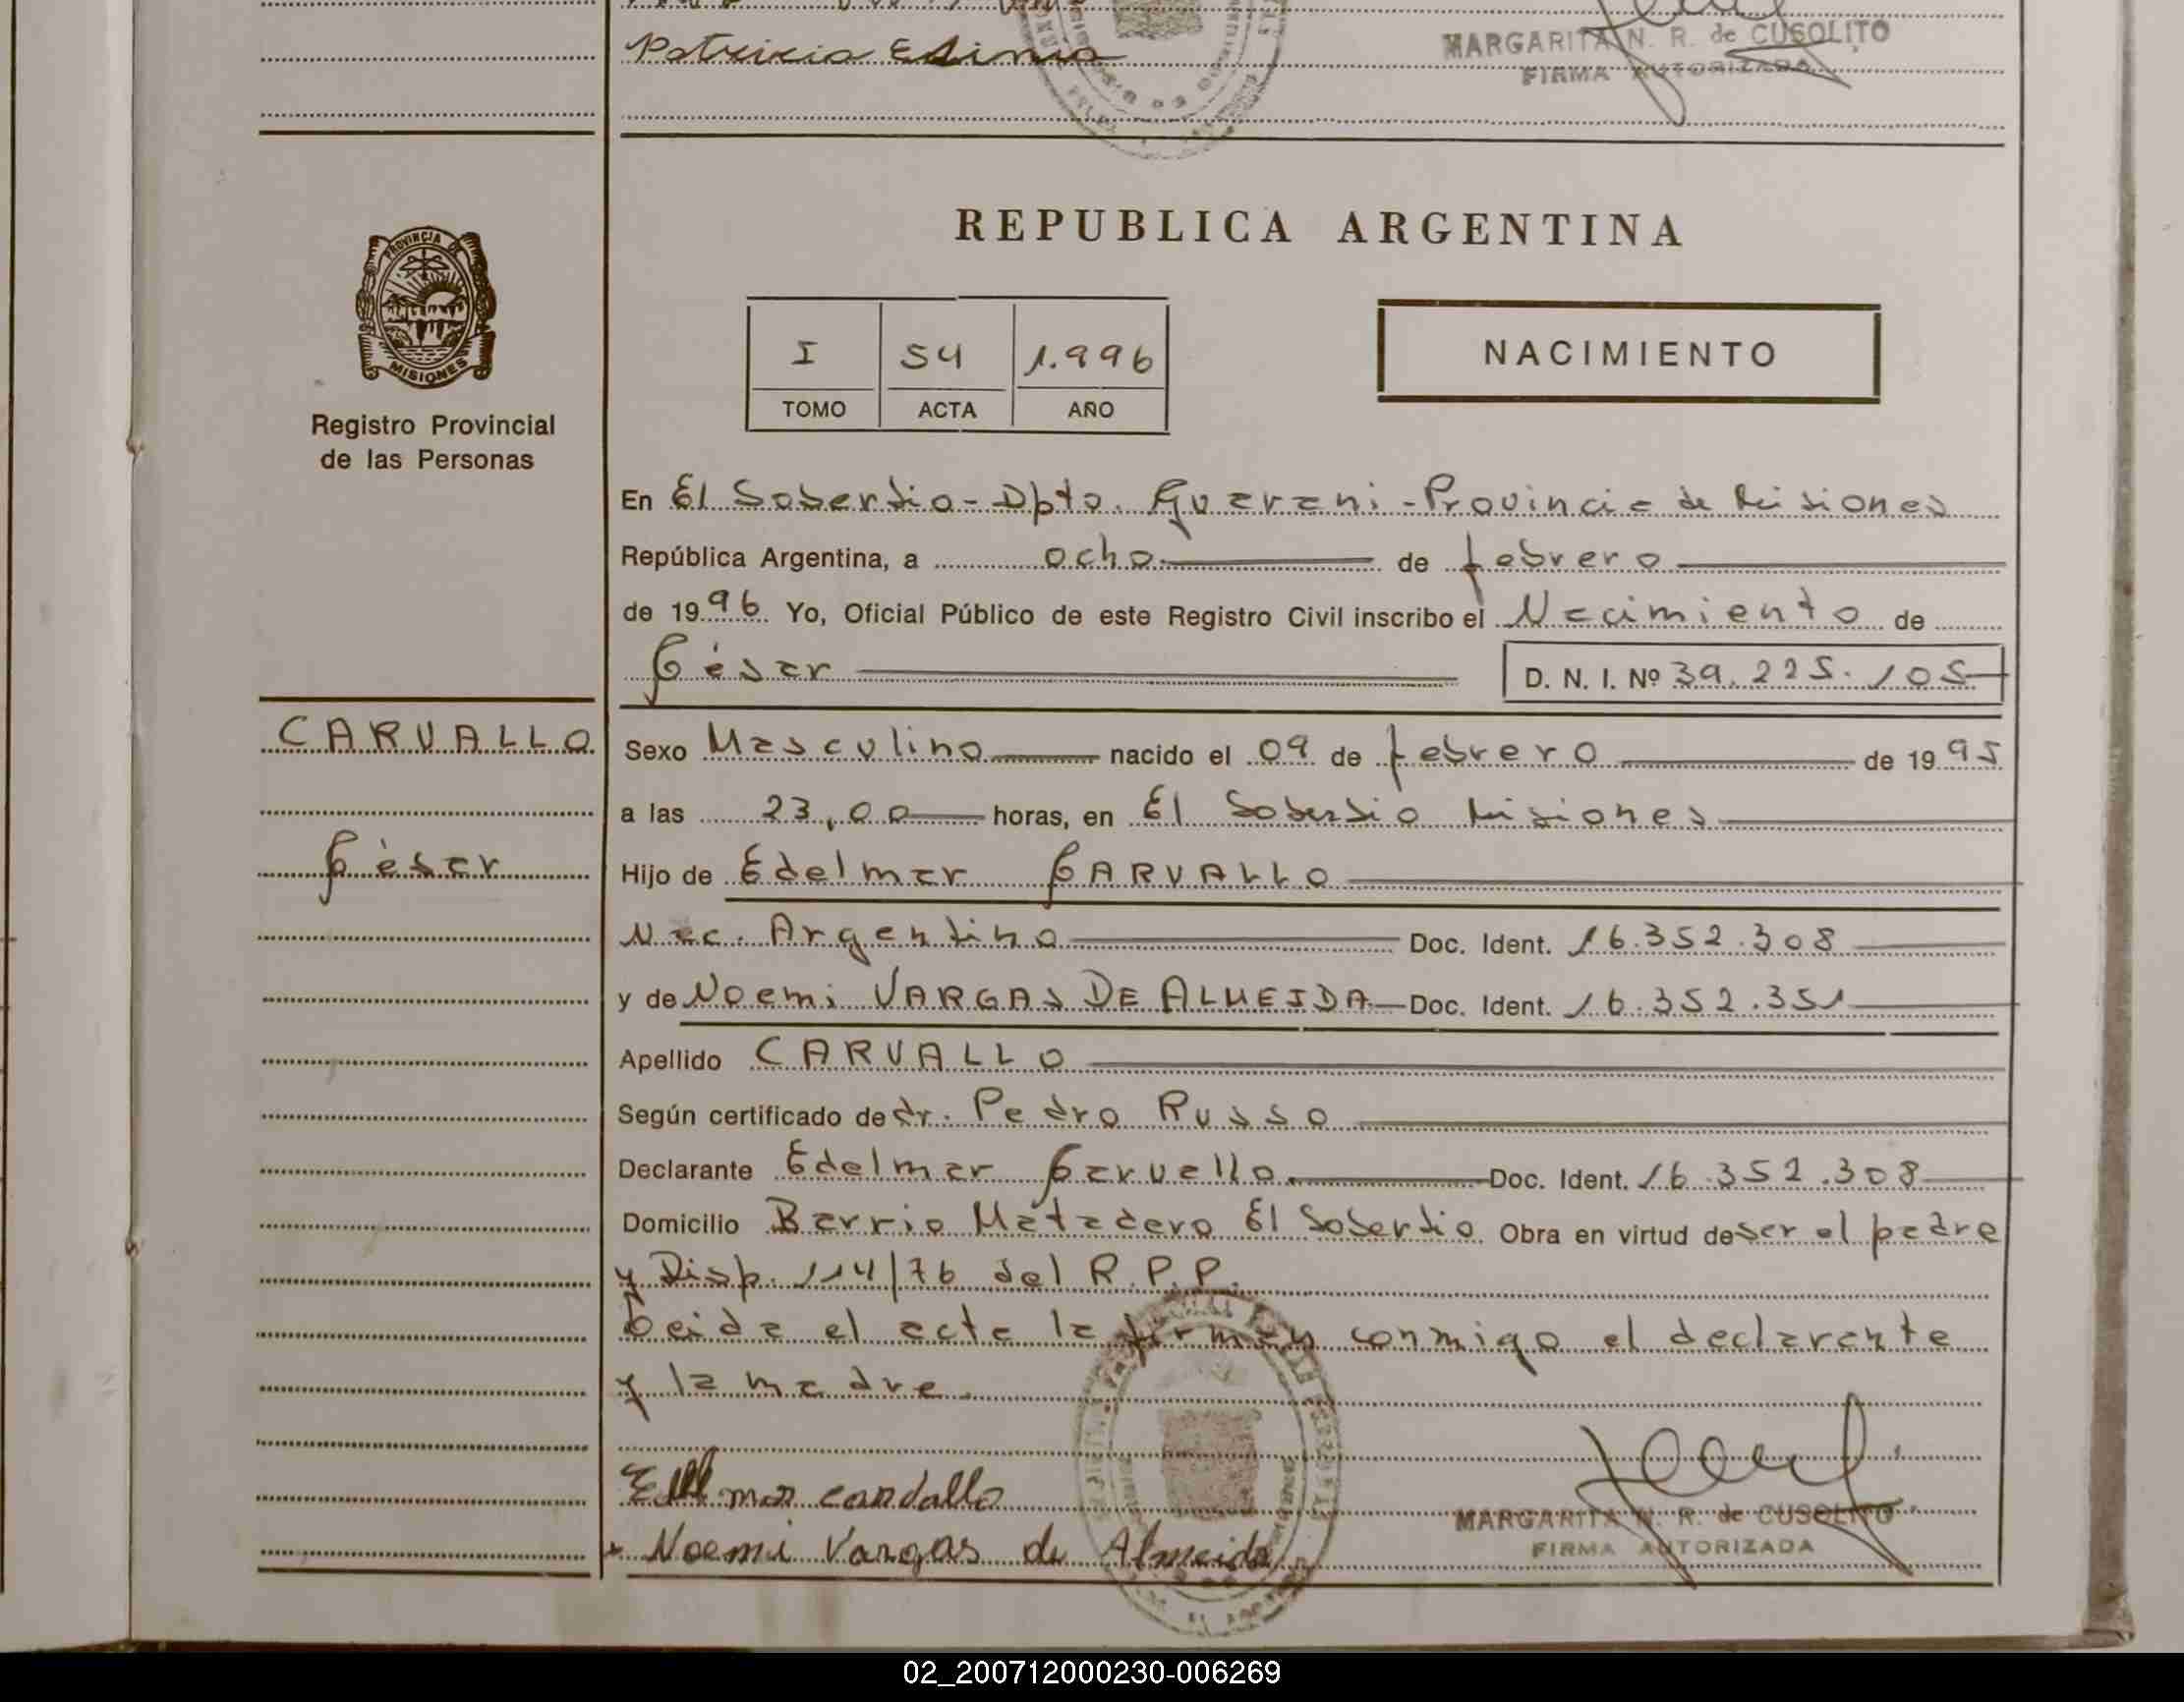 Patricia Edinia
MARGARITA N. R. de CUSOLITO
FIRMA AUTORIZADA
PROVINCIA DE
MISIONES
Registro Provincial
de las Personas
REPUBLICA ARGENTINA
I 54 1.996
TOMO ACTA AÑO
NACIMIENTO
En El Soberbio - Dpto. Guarani - Provincia de Misiones
República Argentina, a ocho de febrero
de 1996 Yo, Oficial Público de este Registro Civil inscribo el Nacimiento de
César D. N. I. Nº 39.225.105
CARVALLO
César
Sexo Masculino nacido el 09 de febrero de 1995
a las 23,00 horas, en El Soberbio Misiones
Hijo de Edelmar CARVALLO
Nac. Argentino Doc. Ident. 16.352.308
y de Noemi VARGAS DE ALMEIDA Doc. Ident. 16.352.351
Apellido CARVALLO
Según certificado de dr. Pedro Russo
Declarante Edelmar Carvallo Doc. Ident. 16.352.308
Domicilio Barrio Matadero El Soberbio Obra en virtud de ser el padre
y Disp. 114/76 del R.P.P.
Leida el acta la firman conmigo el declarante
y la madre.
Edelmar carvallo
Noemi Vargas de Almeida
MARGARITA N. R. de CUSOLITO
FIRMA AUTORIZADA
02_200712000230-006269